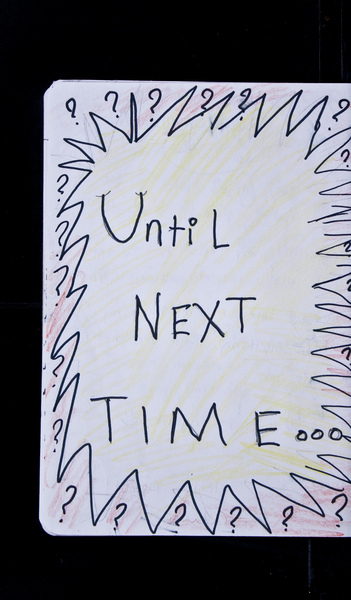 UntiL
NEXT
TIME...